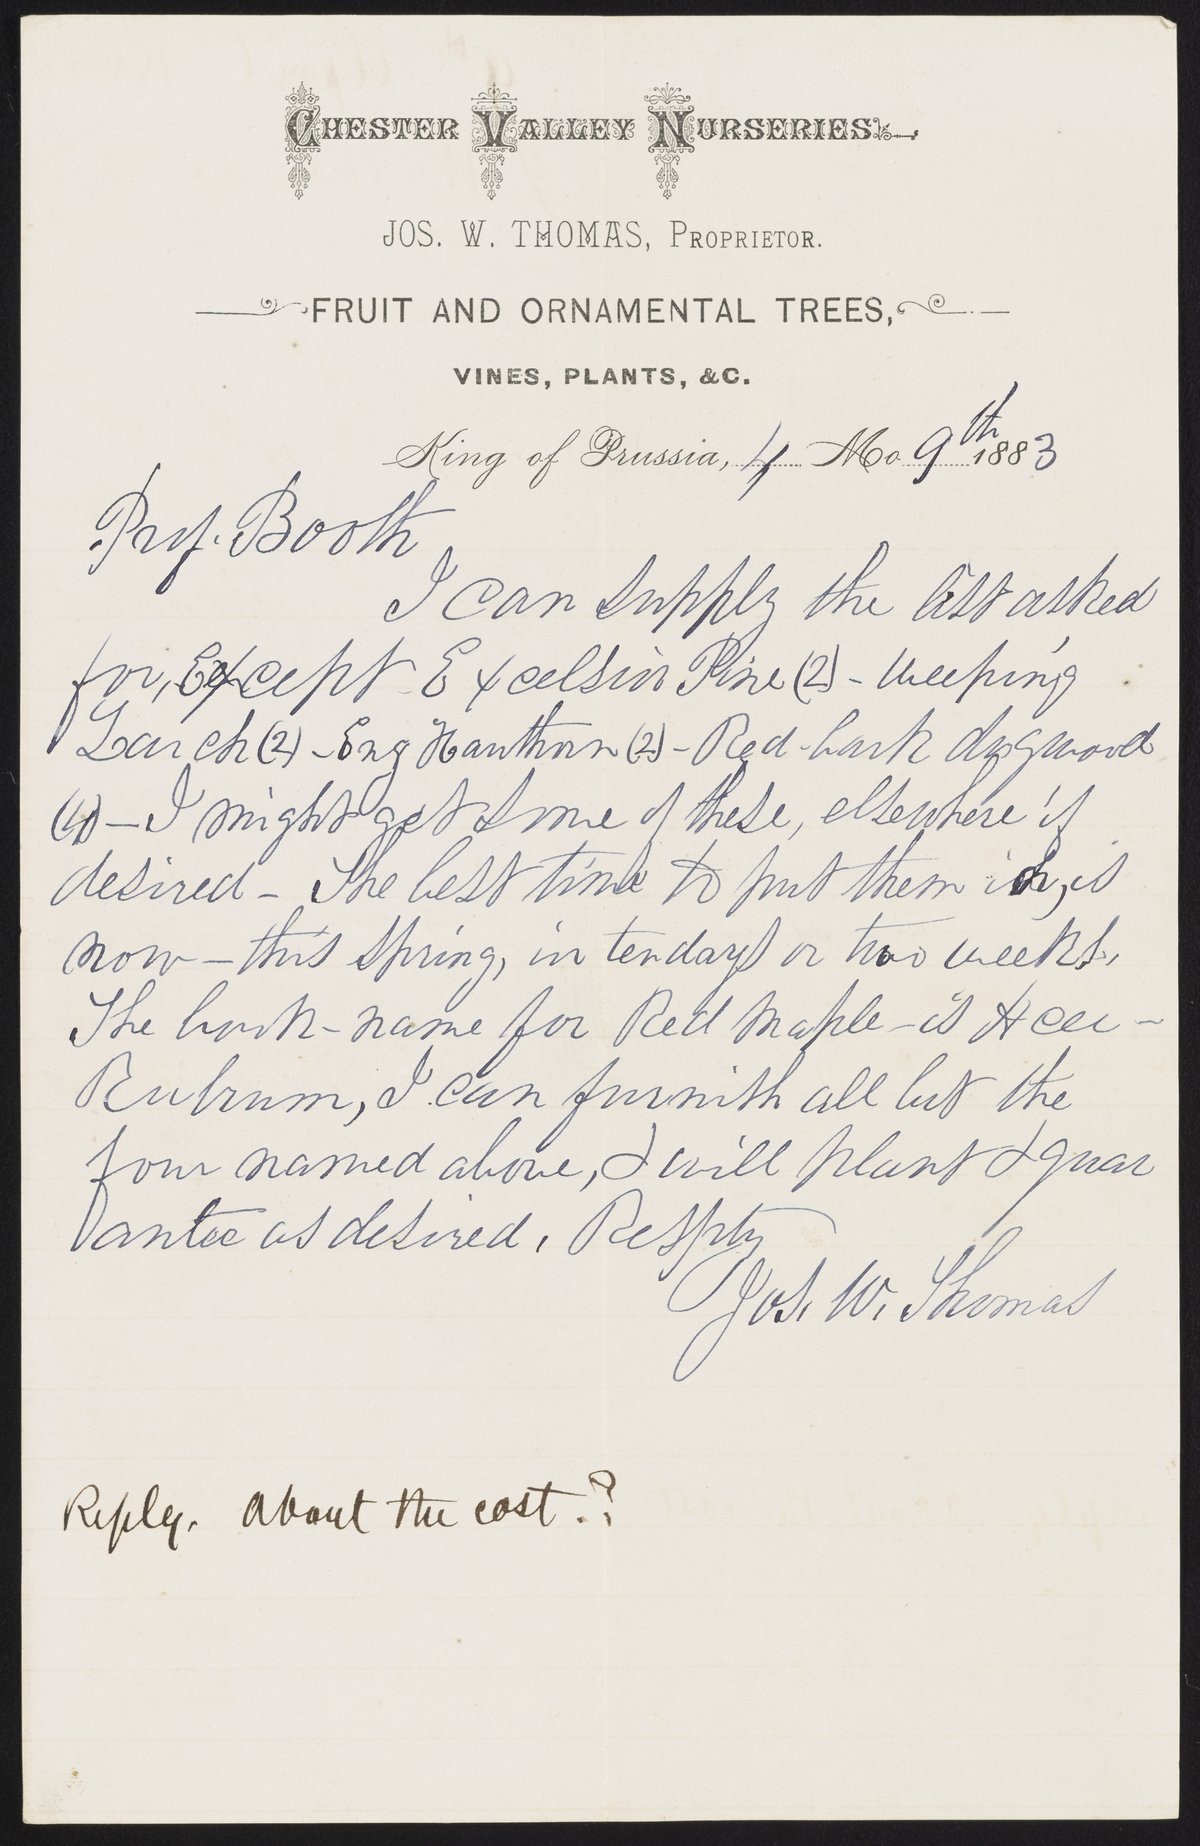 CHESTER VALLEY NURSERIES.
JOS. W. THOMAS, PROPRIETOR.
FRUIT AND ORNAMENTAL TREES,
VINES, PLANTS, &C.
King of Prussia, 4 Mo 9th 1883
Prof. Booth
I can supply the list asked
for, Except Excelsior Pine (2) - Weeping
Larch (2) - Eng Hawthorn (2) - Red-bark dogwood
(4) - I might get some of these, elsewhere if
desired - The best time to put them in, is
now - this spring, in ten days or two weeks.
The book-name for Red Maple - is Acer -
Rubrum, I can furnish all but the
four named above, & will plant & guar
antee as desired, Respty
Jos. W. Thomas
Reply. About the cost.?